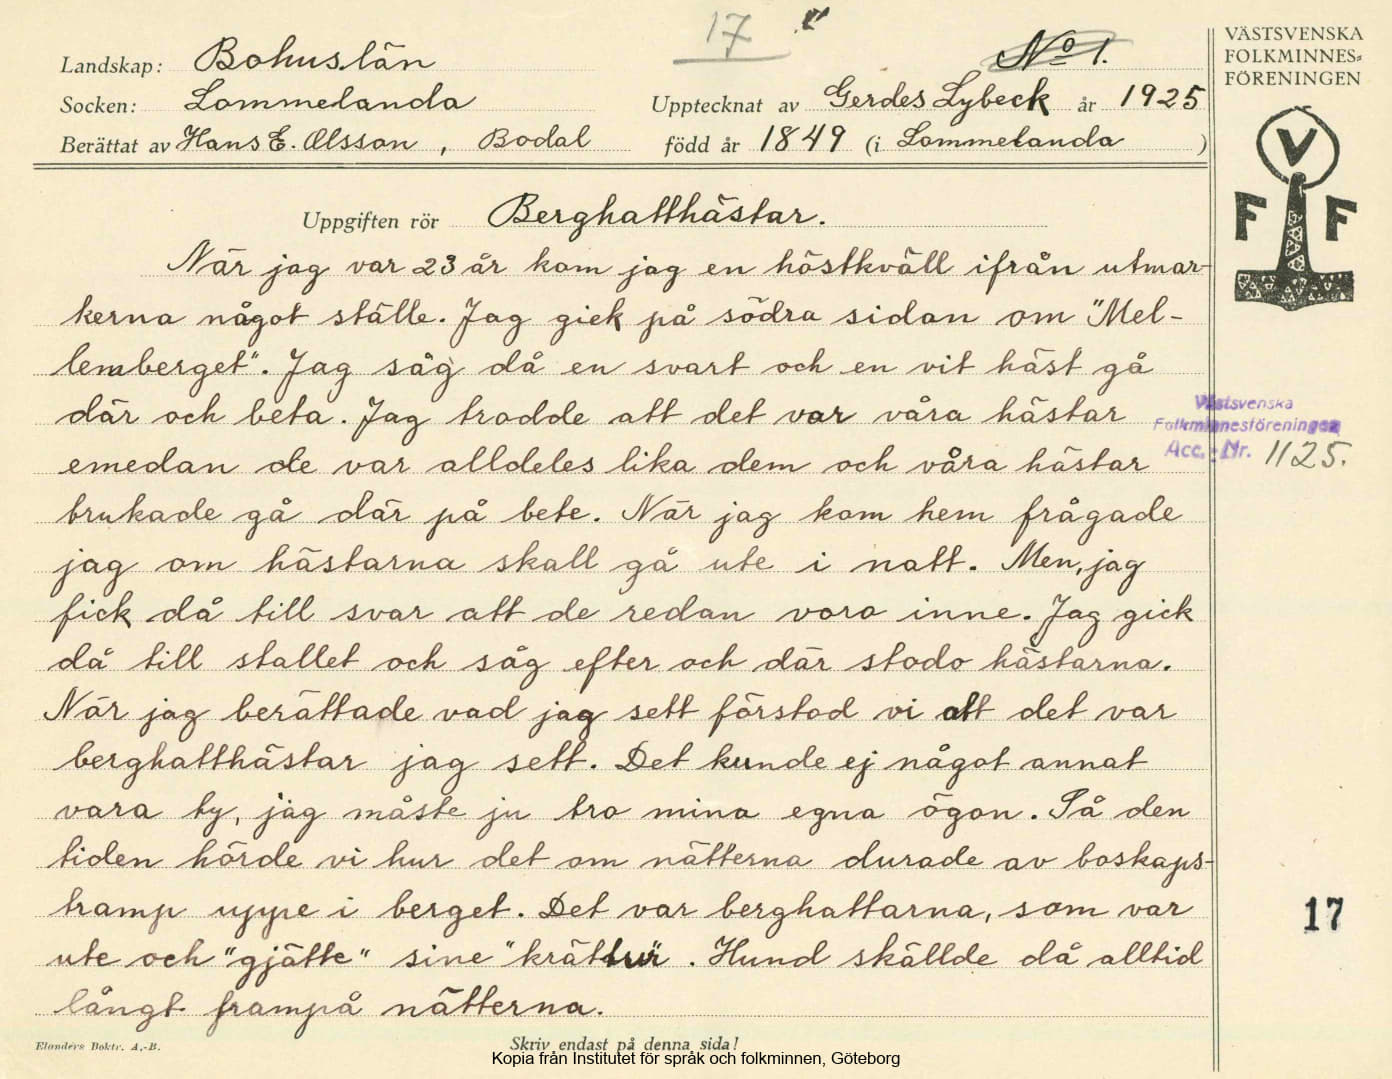 17
No 1.
VÄSTSVENSKA
FOLKMINNES=
FÖRENINGEN
Landskap: Bohuslän
Socken: Lommelanda
Upptecknat av Gerdes Lybeck år 1925
Berättat av Hans E. Olsson, Bodal
född år 1849 (i Lommelanda )
V
F F
Uppgiften rör Berghatthästar.
När jag var 23 år kom jag en höstkväll ifrån utmar-
kerna något ställe. Jag gick på södra sidan om "Mel-
lemberget". Jag såg då en svart och en vit häst gå
där och beta. Jag trodde att det var våra hästar
emedan de var alldeles lika dem och våra hästar
brukade gå där på bete. När jag kom hem frågade
jag om hästarna skall gå ute i natt. Men, jag
fick då till svar att de redan voro inne. Jag gick
då till stallet och såg efter och där stodo hästarna.
När jag berättade vad jag sett förstod vi att det var
berghatthästar jag sett. Det kunde ej något annat
vara ty, jag måste ju tro mina egna ögon. På den
tiden hörde vi hur det om nätterna durade av boskaps-
tramp uppe i berget. Det var berghattarna, som var
ute och "gjätte" sine "krättur". Hund skällde då alltid
långt frampå nätterna.
Västsvenska
Folkminnesföreningen
Acc. Nr. 1125.
17
Elanders Boktr. A.-B.
Skriv endast på denna sida!
Kopia från Institutet för språk och folkminnen, Göteborg